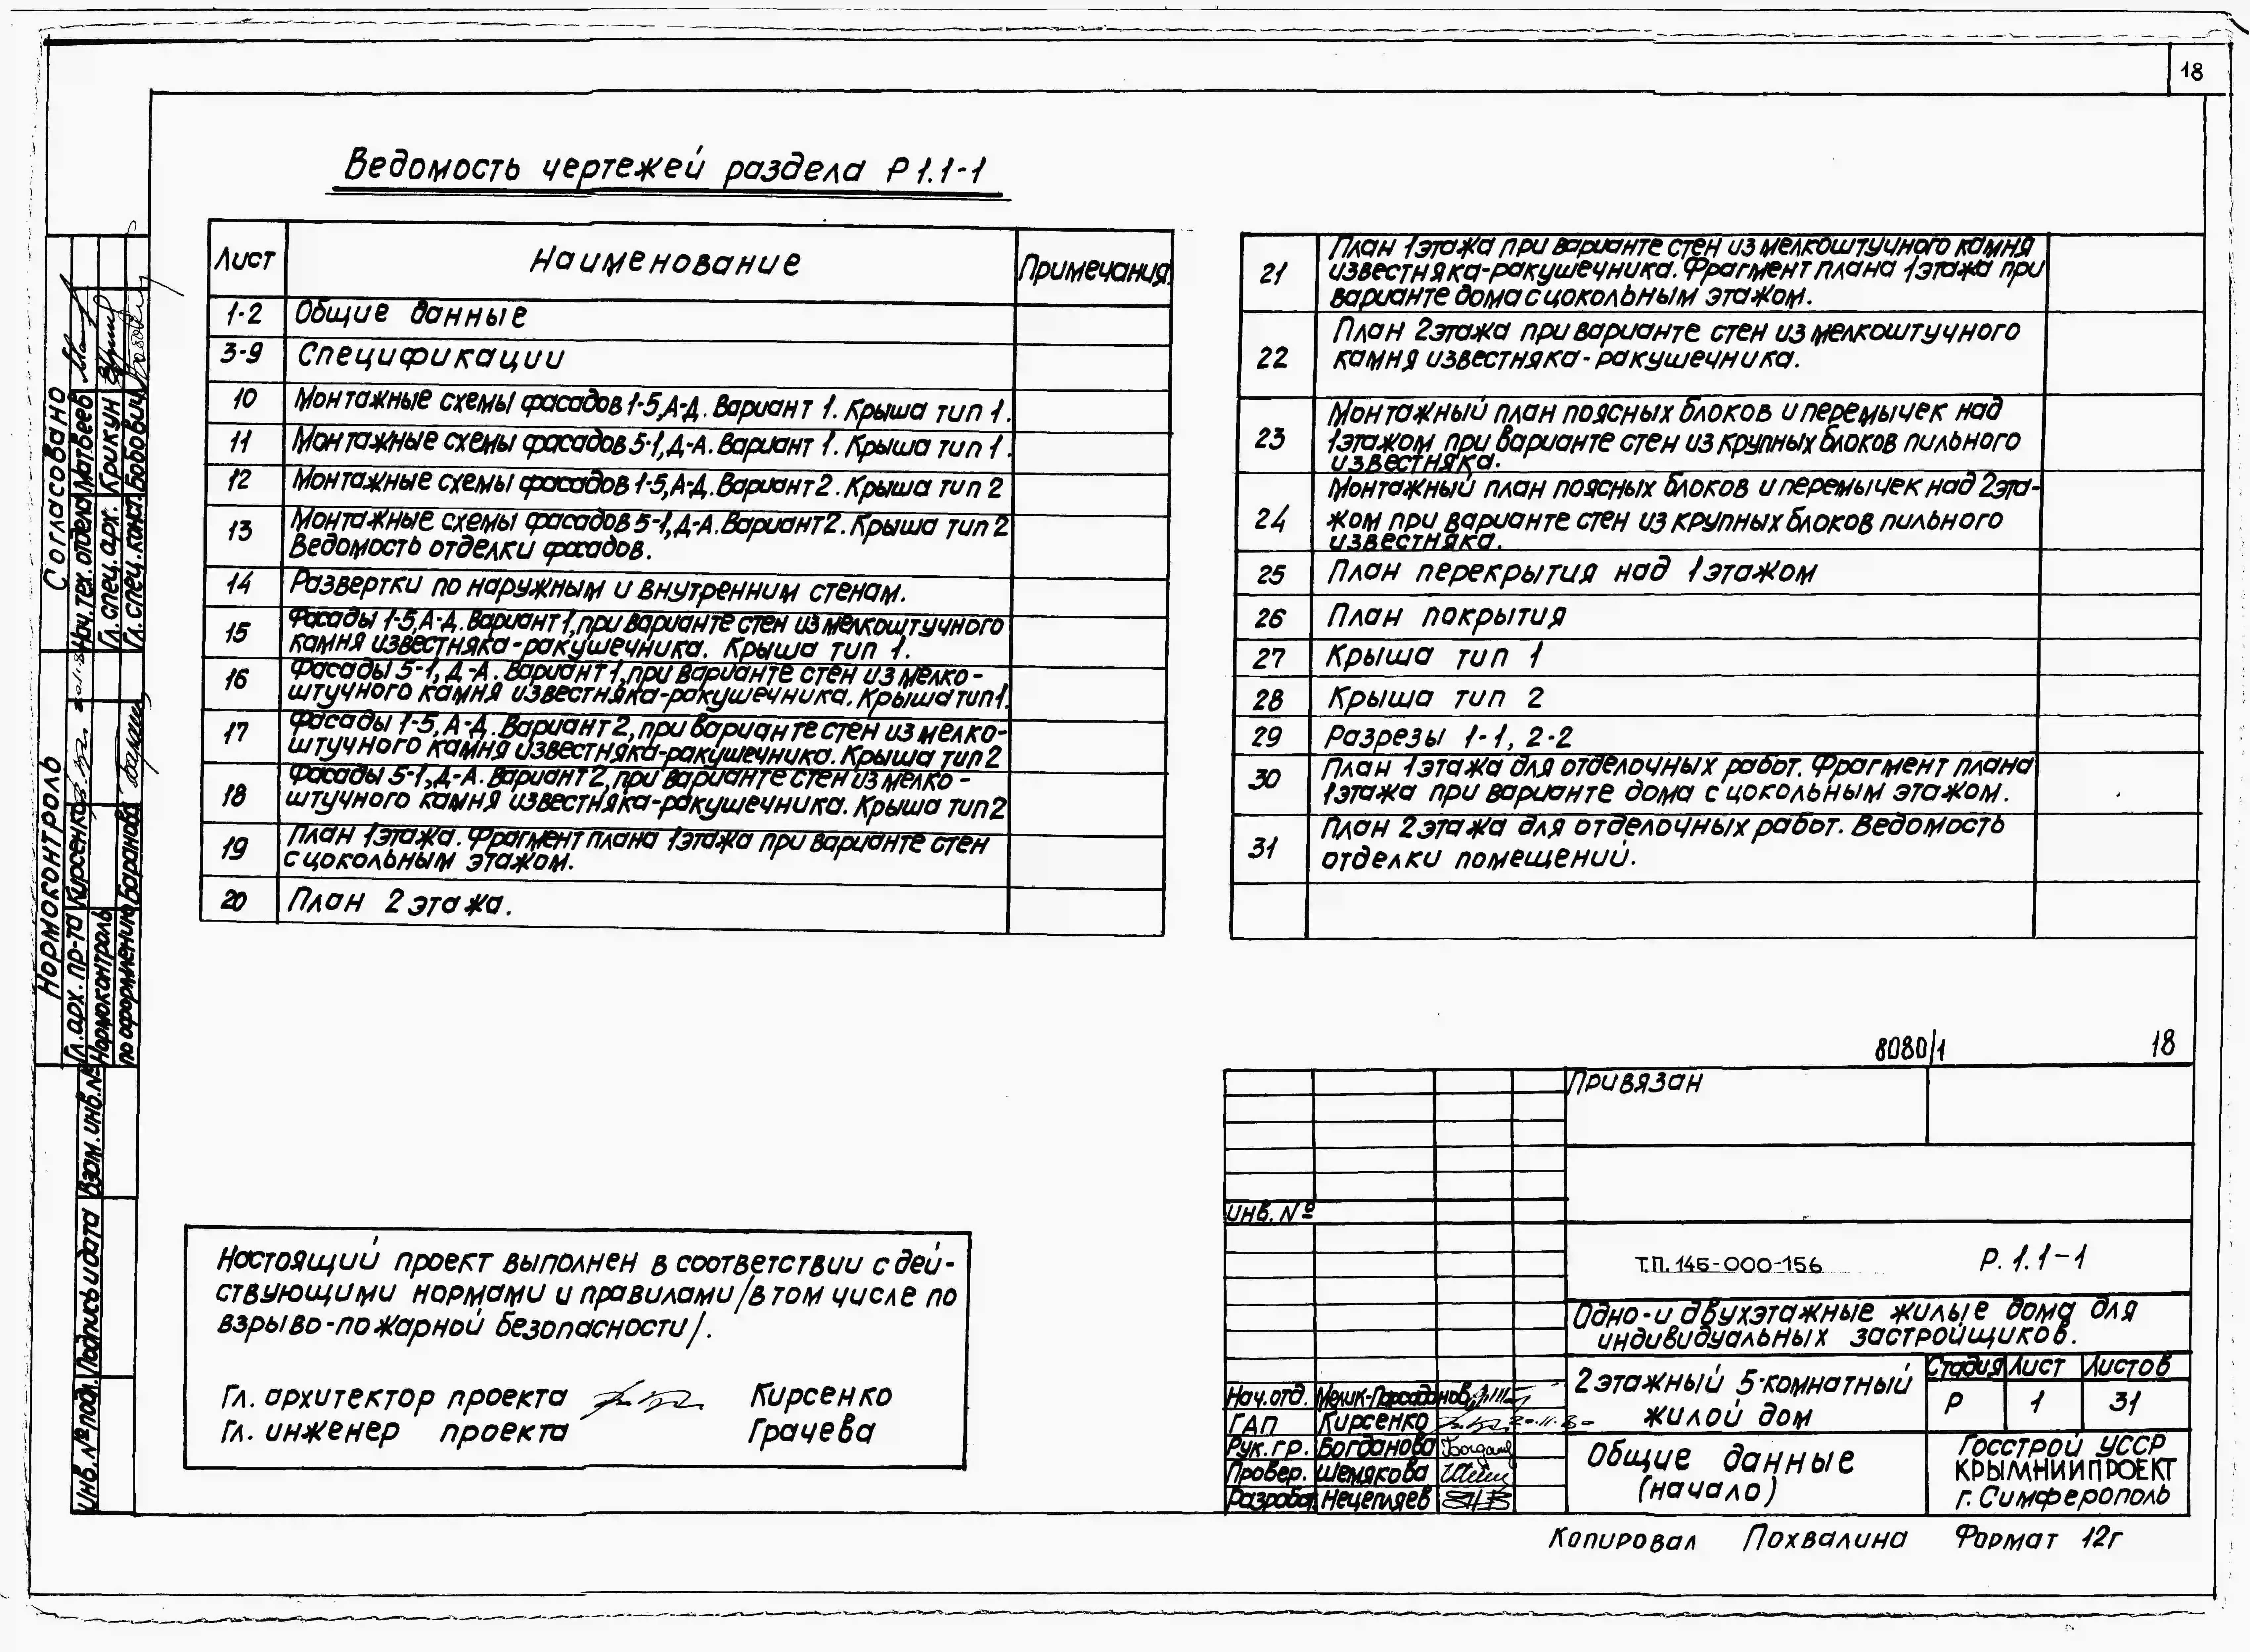 18
Ведомость чертежей раздела Р1.1-1
Лист Наименование Примечания
1-2 Общие данные
3-9 Спецификации
10 Монтажные схемы фасадов 1-5, А-Д. Вариант 1. Крыша тип 1.
11 Монтажные схемы фасадов 5-1, Д-А. Вариант 1. Крыша тип 1.
12 Монтажные схемы фасадов 1-5, А-Д. Вариант 2. Крыша тип 2
13 Монтажные схемы фасадов 5-1, Д-А. Вариант 2. Крыша тип 2
Ведомость отделки фасадов.
14 Развертки по наружным и внутренним стенам.
15 Фасады 1-5, А-Д. Вариант 1, при варианте стен из мелкоштучного
камня известняка-ракушечника. Крыша тип 1.
16 Фасады 5-1, Д-А. Вариант 1, при варианте стен из мелко-
штучного камня известняка-ракушечника. Крыша тип 1.
17 Фасады 1-5, А-Д. Вариант 2, при варианте стен из мелко-
штучного камня известняка-ракушечника. Крыша тип 2
18 Фасады 5-1, Д-А. Вариант 2, при варианте стен из мелко-
штучного камня известняка-ракушечника. Крыша тип 2
19 План 1 этажа. Фрагмент плана 1 этажа при варианте стен
с цокольным этажом.
20 План 2 этажа.
21 План 1 этажа при варианте стен из мелкоштучного камня
известняка-ракушечника. Фрагмент плана 1 этажа при
варианте дома с цокольным этажом.
22 План 2 этажа при варианте стен из мелкоштучного
камня известняка-ракушечника.
23 Монтажный план поясных блоков и перемычек над
1 этажом при варианте стен из крупных блоков пильного
известняка.
24 Монтажный план поясных блоков и перемычек над 2 эта-
жом при варианте стен из крупных блоков пильного
известняка.
25 План перекрытия над 1 этажом
26 План покрытия
27 Крыша тип 1
28 Крыша тип 2
29 Разрезы 1-1, 2-2
30 План 1 этажа для отделочных работ. Фрагмент плана
1 этажа при варианте дома с цокольным этажом.
31 План 2 этажа для отделочных работ. Ведомость
отделки помещений.
Согласовано
Нач. тех. отдела Матвеев
Гл. спец. арх. Крикун
Гл. спец. конст. Бобович
Нормоконтроль
Гл. арх. пр-та Кирсенко
Нормоконтроль
по оформлению Баранова
Взам. инв. №
Подпись и дата
Инв. № подл.
Настоящий проект выполнен в соответствии с дей-
ствующими нормами и правилами /в том числе по
взрыво-пожарной безопасности/.
Гл. архитектор проекта Кирсенко
Гл. инженер проекта Грачева
8080/1 18
Привязан
инв. №
Т.П. 145-000-156 Р. 1.1-1
Одно-и двухэтажные жилые дома для
индивидуальных застройщиков.
2 этажный 5-комнатный
жилой дом
Стадия Лист Листов
Р 1 31
Общие данные
(начало)
Госстрой УССР
КРЫМНИИПРОЕКТ
г. Симферополь
Нач. отд. Мелик-Парсаданов
ГАП Кирсенко
Рук. гр. Богданова
Провер. Шемякова
Разработ. Нецепляев
Копировал Похвалина Формат 12г